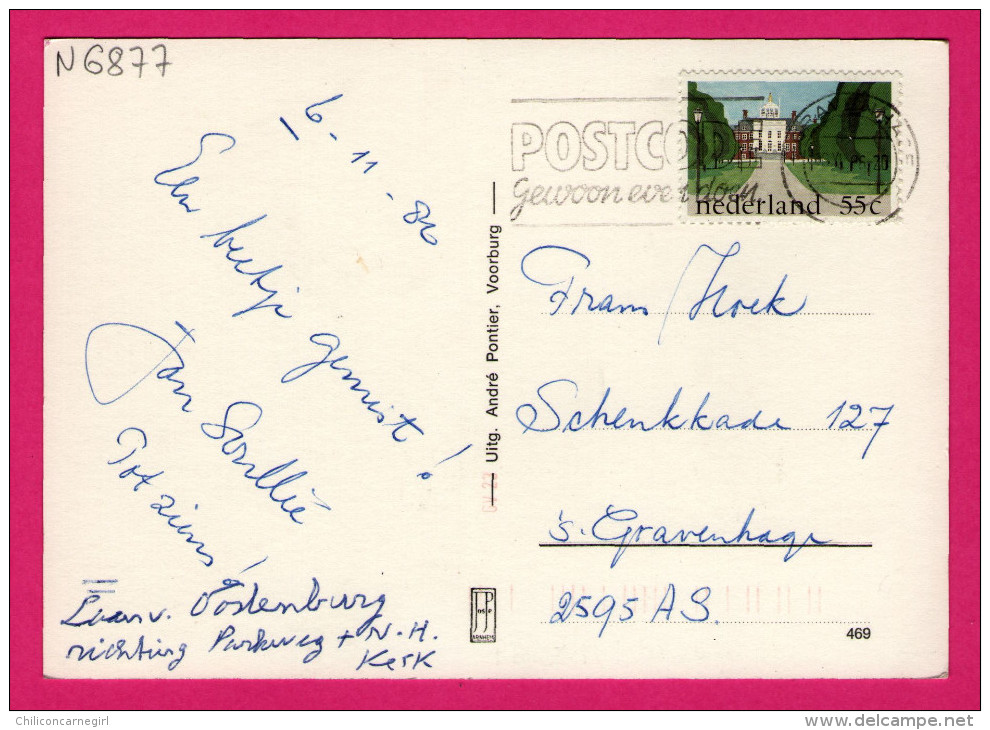 N6877
16-11-86
Een beetje gemist!
Jan Soullié
Tot ziens!
Laan v. Oostenburg
richting Parkweg + N.H.
Kerk
Uitg. André Pontier, Voorburg
POSTCODE
gewoon even doen
nederland 55c
Frans Hoek
Schenkkade 127
's-Gravenhage
2595 AS.
469
Chiliconcarnegirl
www.delcampe.net